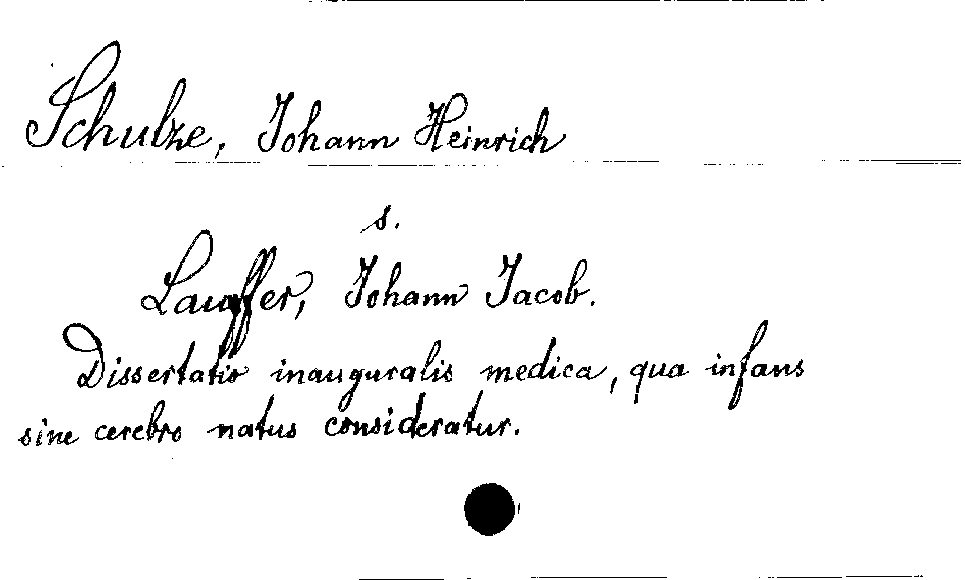 Schulze, Johann Heinrich
s.
Lauffer, Johann Jacob.
Dissertatio inauguralis medica, qua infans
sine cerebro natus consideratur.